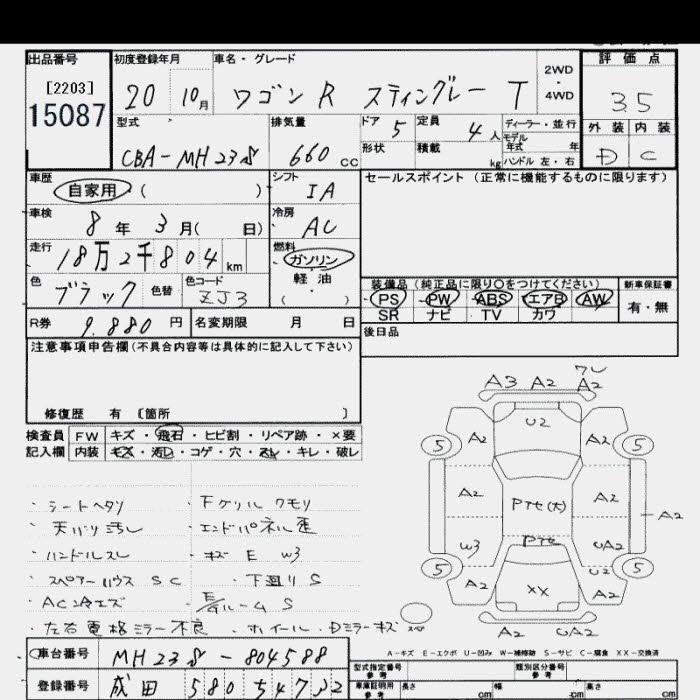 出品番号
[2203]
15087
初度登録年月
20 10月
車名・グレード
ワゴンR スティングレー T
2WD・4WD
評価点
3.5
外装 内装
D C
型式
CBA-MH23S
排気量
660 CC
ドア
5
定員
4人
形状
積載
kg
ディーラー・並行
モデル年式 年
ハンドル 左・右
車歴
自家用 ( )
シフト
IA
セールスポイント (正常に機能するものに限ります)
車検
8年 3月( 日)
冷房
AC
走行
18万2千804 km
燃料
ガソリン
軽油
( )
色
ブラック
色替
色コード
ZJ3
装備品(純正品に限り○をつけてください)
PS PW ABS エアB AW
SR ナビ TV カワ
新車保証書
有・無
R券
9,880 円
名変期限 月 日
後日品
注意事項申告欄(不具合内容等は具体的に記入して下さい)
修復歴 有 〔箇所 〕
検査員記入欄
FW キズ・飛石・ヒビ割・リペア跡・×要
内装 キズ・汚レ・コゲ・穴・スレ・キレ・破レ
・シートヘタリ ・下グリル クモリ
・天バリ汚レ ・エンドパネル歪
・ハンドルスレ ・キズ E W3
・スペアーハウス SC ・下廻り S
・AC冷エズ ・E/Gルーム S
・左右電格ミラー不良 ・ホイール・Dミラーキズ
A3 A2 ワレ A2
U2
5 A2 A2 5
A2 Pアセ(大) A2 A2
W3 Pアセ UA2
5 A2 XX U2 A2 5
A2 UA2
A-キズ E-エクボ U-凹み W-補修跡 S-サビ C-腐食 XX-交換済
車台番号
MH23S-804588
登録番号
成田 580
型式指定番号
参考
類別区分番号
参考
車庫証明用
参考
長さ cm
幅 cm
高さ cm